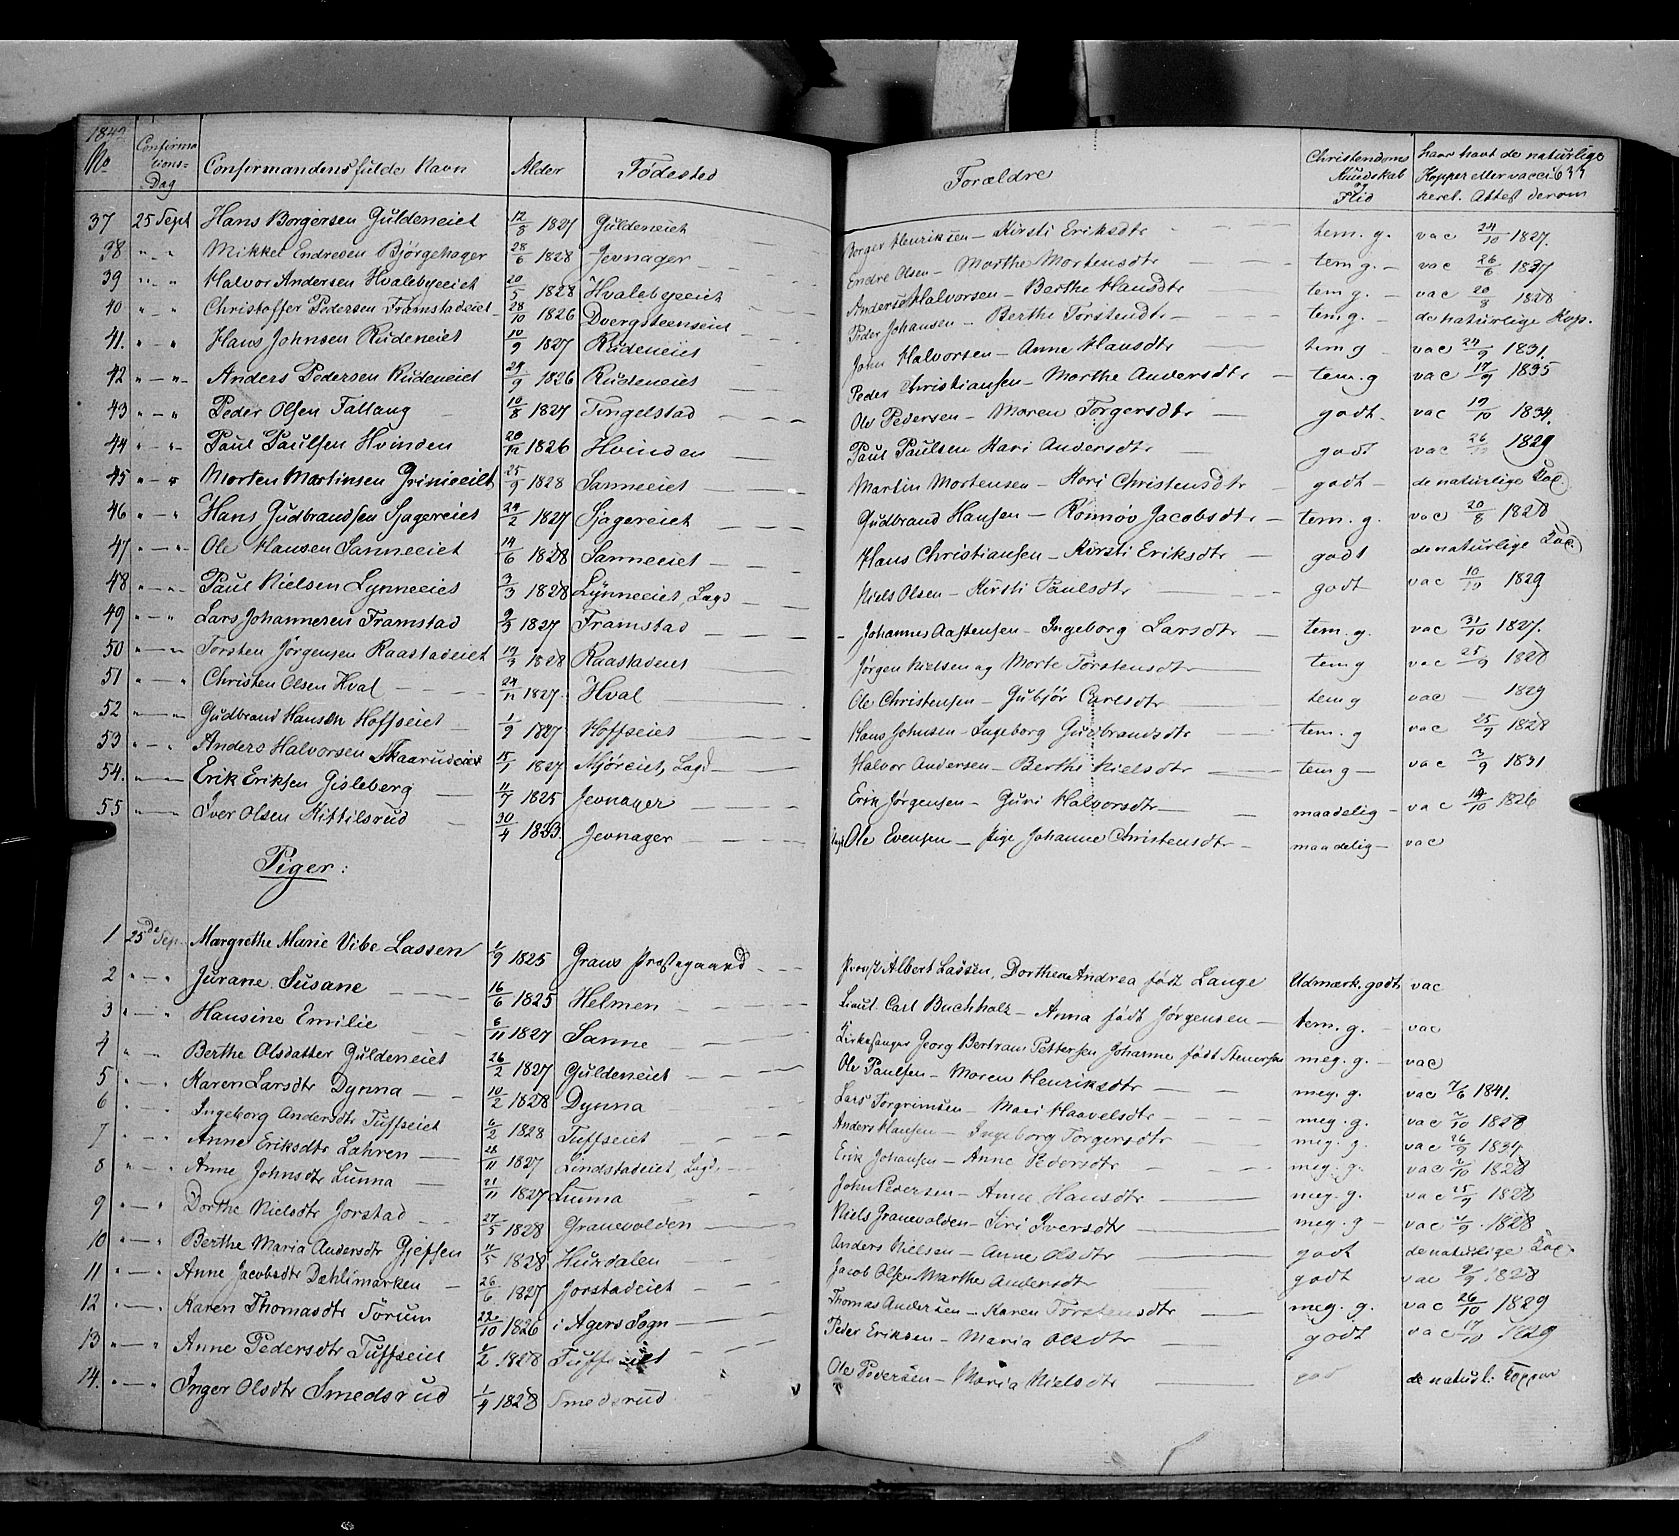 1842
No Confirmations-Dag Confirmandens fulde Navn Alder Fødested Forældre Christendoms Kundskab og Flid haar havt de naturlige Kopper eller vacci- neret. Attest derom 633
37 25 Sept Hans Borgersen Guldeneiet 12/5 1827 Guldeneiet Borger Henriksen - Kirsti Eriksdtr tem. g. vac 24/10 1827.
38 " - " Mikkel Endresen Bjørgehager 28/6 1828 Jevnager Endre Olsen - Marthe Mortensdtr tem g. - vac 26/6 1837
39 " - " Halvor Andersen Hvalebyeeiet 20/5 1828 Hvalebyeeiet Anders Halvorsen - Berthe Hansdtr tem g. - vac 20/8 1828
40 " - " Christoffer Pedersen Framstadeiet 28/10 1826 Dvergsteenseiet Peder Johansen - Berthe Torstendtr tem g. - de naturlige Kop.
41. " - " Hans Johnsen Rudeneiet 10/9 1827 Rudeneiet John Halvorsen - Anne Hansdtr tem g - vac 24/9 1831.
42 " - " Anders Pedersen Rudeneiet 29/9 1826 Rudeneiet Peder Christiansen - Marthe Andersdtr tem. g vac 17/9 1835
43 " - " Peder Olsen Tallaug 10/8 1827 Tingelstad Ole Pedersen - Maren Torgersdtr godt - vac 19/10 1834.
44 " - " Paul Paulsen Hvinden 20/12 1826 Hvinden Paul Paulsen Kari Andersdtr godt vac 26/10 1829
45 " - " Morten Martinsen Grinieeiet 25/9 1828 Sanneeiet Martin Mortensen - Kari Christensdtr godt - de naturlige Koc
46 " - " Hans Gudbrandsen Sjagereiet 24/2 1827 Sjagereiet Gudbrand Hansen - Rønnøv Jacobsdtr tem. g. vac 20/8 1828
47 " - " Ole Hansen Sanneeiet 14/6 1828 Sanneeiet Hans Christiansen - Kirsti Eriksdtr godt de naturlige Koc
48 " - " Paul Nielsen Lynneeiet 3/3 1828 Lynneeiet, Lags Niels Olsen - Kirsti Paulsdtr godt vac 10/10 1829
49 " - " Lars Johannesen Framstad 9/3 1827 Framstad Johannes Aastensen - Ingeborg Larsdtr tem. g. vac 31/10 1827.
50 " - " Torsten Jørgensen Raastadeiet 19/3 1828 Raastadeiet Jørgen Nielsen og Marte Torstensdtr tem g vac 25/9 1828
51 " - " Christen Olsen Hval 24/11 1827. Hval Ole Christensen - Gubjør Carlsdtr tem g vac - 1829
52 " - " Gudbrand Hansen Hoffseiet 1/9 1827 Hoffseiet Hans Johnsen - Ingeborg Gudbrandsdtr tem. g vac 25/9 1828
53 " - " Anders Halvorsen Skaarudeiet 15/1 1827 Mjøreiet, Lags Halvor Andersen - Berthe Nielsdtr tem g - vac 3/9 1831
54. " - " Erik Eriksen Gisleberg 11/7 1825 Jevnager Erik Jørgensen - Guri Halvorsdtr maadelig - vac 14/10 1826
55 " - " Iver Olsen Kittilsrud 30/4 1833. Jevnager Ole Evensen - pige Johanne Christensdtr maadelig - vac
Piger:
1 25de Sep. Margrethe Marie Vibe Lassen 1/9 1825 Grans Præstegaard Provst Albert Lassen, Dorthea Andrea født Lange Udmærk. godt vac
2 " - " Jurane Susane 16/6 1825 Helmen Lieut. Carl Buchholz - Anna født Jørgensen tem. g. - vac
3 " - " Hansine Emilie 6/11 1827 Sanne Kirkesanger Georg Bertram Pettersen Johanne født Stenersen meg. g. - vac
4 " - " Berthe Olsdatter Guldeneiet 26/2 1827 Guldeneiet Ole Paulsen - Maren Henriksdtr meg. g. vac 7/6 1841.
5 " - " Karen Larsdtr Dynna 10/2 1828 Dynna Lars Torgrimsen - Mari Haavelsdtr meg. g. vac 2/10 1828
6 " - " Ingeborg Andersdtr Tuffseiet 6/2 1828 Tuffseiet Anders Hansen - Ingeborg Torgersdtr meg. g. vac 26/9 1834
7 " - " Anne Eriksdtr Lahren 28/11 1827 Lindstadeiet, Lags Erik Johansen - Anne Pedersdtr meg. g. vac 2/10 1828
8 " - " Anne Johnsdtr Lunna 21/11 1827 Lunna John Pedersen - Anne Hansdtr meg. g. vac 25/9 1828
9 " - " Dorthe Nielsdtr Jorstad 27/5 1828 Granevolden Niels Granevolden - Siri Iversdtr meg. g - vac 1828
10 " - " Berthe Maria Andersdtr Gjefsen 11/5 1828 Hurdalen Anders Nielsen - Anne Olsdtr godt de naturlige Koc
11 " - " Anne Jacobsdtr Dæhlimarken 26/6 1827 Jorstadeiet Jacob Olsen Marthe Andersdtr godt vac 9/9 1828
12 " - " Karen Thomasdtr Sørum 22/10 1826 i Agers Sogn Thomas Andersen - Karen Torstensdtr meg. g. vac 26/10 1829
13 " - " Anne Pedersdtr Tuffseiet 1/2 1828 Tuffseiet Peder Eriksen - Maria Olsdtr godt vac 17/10 1829
14. " - " Inger Olsdtr Smedsrud 1/4 1828 Smedsrud Ole Pedersen - Maria Nielsdtr god de naturl. Kopper